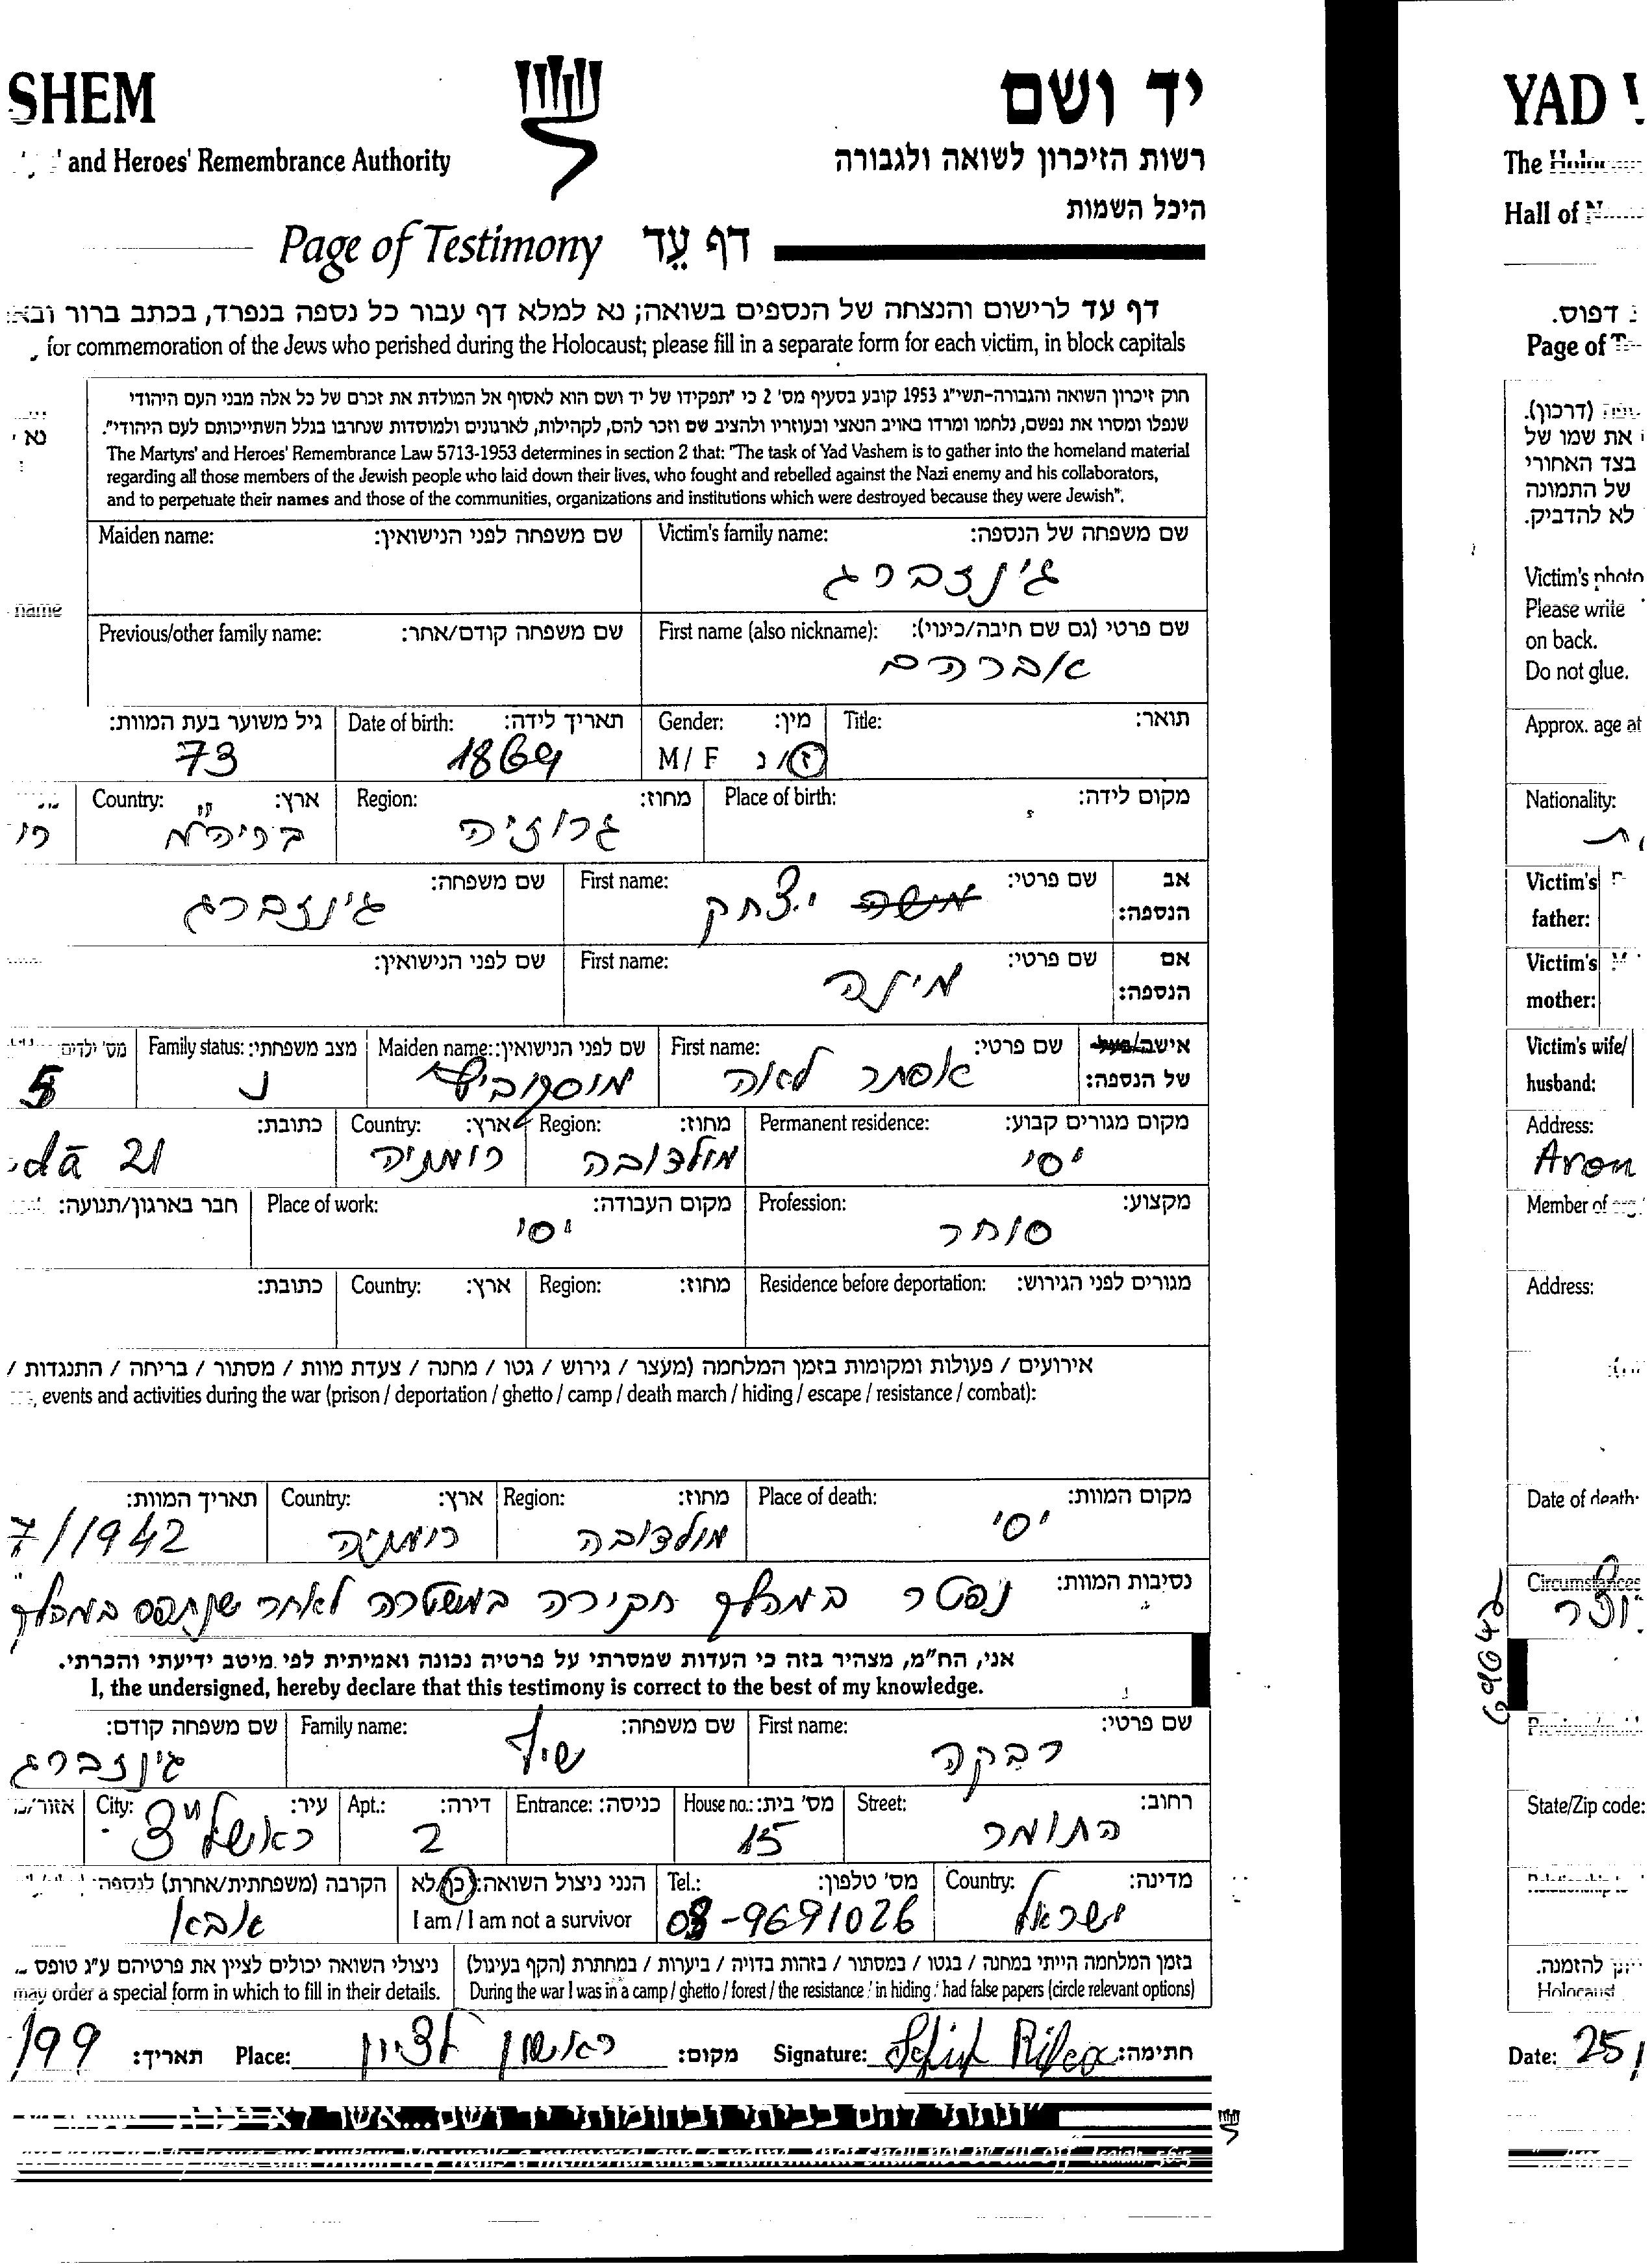 SHEM
יד ושם
YAD
and Heroes' Remembrance Authority
רשות הזיכרון לשואה ולגבורה
The
היכל השמות
Hall of
Page of Testimony דף עֵד
דף עד לרישום והנצחה של הנספים בשואה; נא למלא דף עבור כל נספה בנפרד, בכתב ברור
דפוס.
for commemoration of the Jews who perished during the Holocaust; please fill in a separate form for each victim, in block capitals
Page of
חוק זיכרון השואה והגבורה-תשי"ג 1953 קובע בסעיף מס' 2 כי "תפקידו של יד ושם הוא לאסוף אל המולדת את זכרם של כל אלה מבני העם היהודי
שנפלו ומסרו את נפשם, נלחמו ומרדו באויב הנאצי ובעוזריו ולהציב שם וזכר להם, לקהילות, לארגונים ולמוסדות שנחרבו בגלל השתייכותם לעם היהודי".
The Martyrs' and Heroes' Remembrance Law 5713-1953 determines in section 2 that: "The task of Yad Vashem is to gather into the homeland material
regarding all those members of the Jewish people who laid down their lives, who fought and rebelled against the Nazi enemy and his collaborators,
and to perpetuate their names and those of the communities, organizations and institutions which were destroyed because they were Jewish".
נא
(דרכון).
את שמו של
בצד האחורי
של התמונה
לא להדביק.
Victim's photo
Please write
on back.
Do not glue.
שם משפחה של הנספה: Victim's family name:
שם משפחה לפני הנישואין: Maiden name:
גינזברג
name
שם פרטי (גם שם חיבה/כינוי): First name (also nickname):
שם משפחה קודם/אחר: Previous/other family name:
אברהם
תואר: Title:
מין: Gender:
תאריך לידה: Date of birth:
גיל משוער בעת המוות:
Approx. age at
ז/נ M/ F
1869
73
מקום לידה: Place of birth:
מחוז: Region:
ארץ: Country:
Nationality:
גרוזיה
בריה"מ
אב
הנספה:
שם פרטי: First name:
שם משפחה:
Victim's
father:
משה יצחק
גינזברג
אם
הנספה:
שם פרטי: First name:
שם לפני הנישואין:
Victim's
mother:
מינה
אישה/בעל
של הנספה:
שם פרטי: First name:
שם לפני הנישואין: Maiden name:
מצב משפחתי: Family status:
מס' ילדים
Victim's wife/
husband:
אסתר לאה
מוסקוביץ
נ
5
מקום מגורים קבוע: Permanent residence:
מחוז: Region:
ארץ: Country:
כתובת:
Address:
יסי
מולדובה
רומניה
dă 21
Aron
מקצוע: Profession:
מקום העבודה: Place of work:
חבר בארגון/תנועה:
Member of
סוחר
יסי
מגורים לפני הגירוש: Residence before deportation:
מחוז: Region:
ארץ: Country:
כתובת:
Address:
אירועים / פעולות ומקומות בזמן המלחמה (מעצר / גירוש / גטו / מחנה / צעדת מוות / מסתור / בריחה / התנגדות /
events and activities during the war (prison / deportation / ghetto / camp / death march / hiding / escape / resistance / combat):
מקום המוות: Place of death:
מחוז: Region:
ארץ: Country:
תאריך המוות:
Date of death:
יסי
מולדובה
רומניה
7/1942
נסיבות המוות:
Circumstances
נפטר במהלך חקירה במשטרה לאחר שנתפס במהלך
אני, הח"מ, מצהיר בזה כי העדות שמסרתי על פרטיה נכונה ואמיתית לפי מיטב ידיעתי והכרתי.
I, the undersigned, hereby declare that this testimony is correct to the best of my knowledge.
שם פרטי: First name:
שם משפחה: Family name:
שם משפחה קודם:
רבקה
שיף
גינזברג
רחוב: Street:
מס' בית: House no.:
כניסה: Entrance:
דירה: Apt.:
עיר: City:
State/Zip code:
התומר
15
2
ראשל"צ
מדינה: Country:
מס' טלפון: Tel.:
הנני ניצול השואה: כן/לא
I am / I am not a survivor
הקרבה (משפחתית/אחרת) לנספה:
ישראל
03-9691026
אבא
בזמן המלחמה הייתי במחנה / בגטו / במסתור / בזהות בדויה / ביערות / במחתרת (הקף בעיגול)
ניצולי השואה יכולים לציין את פרטיהם ע"ג טופס
להזמנה.
During the war I was in a camp / ghetto / forest / the resistance / in hiding / had false papers (circle relevant options)
may order a special form in which to fill in their details.
Holocaust
חתימה: Signature:
מקום: ראשון לציון Place:
תאריך: /99
Date: 25/
Isaiah, 56:5